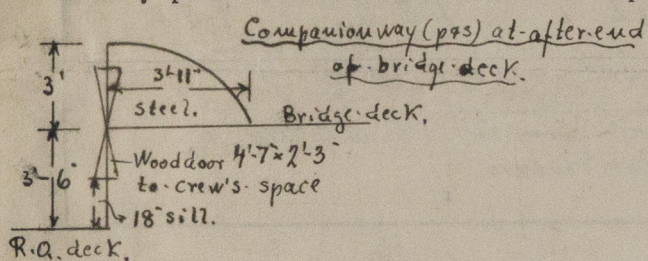 Companionway (p&s) at after end
of bridge deck.
3'
3'-11"
steel.
Bridge deck.
Wood door 4'-7" × 2'-3"
3'-6"
to crew's space
18" sill.
R.Q. deck.